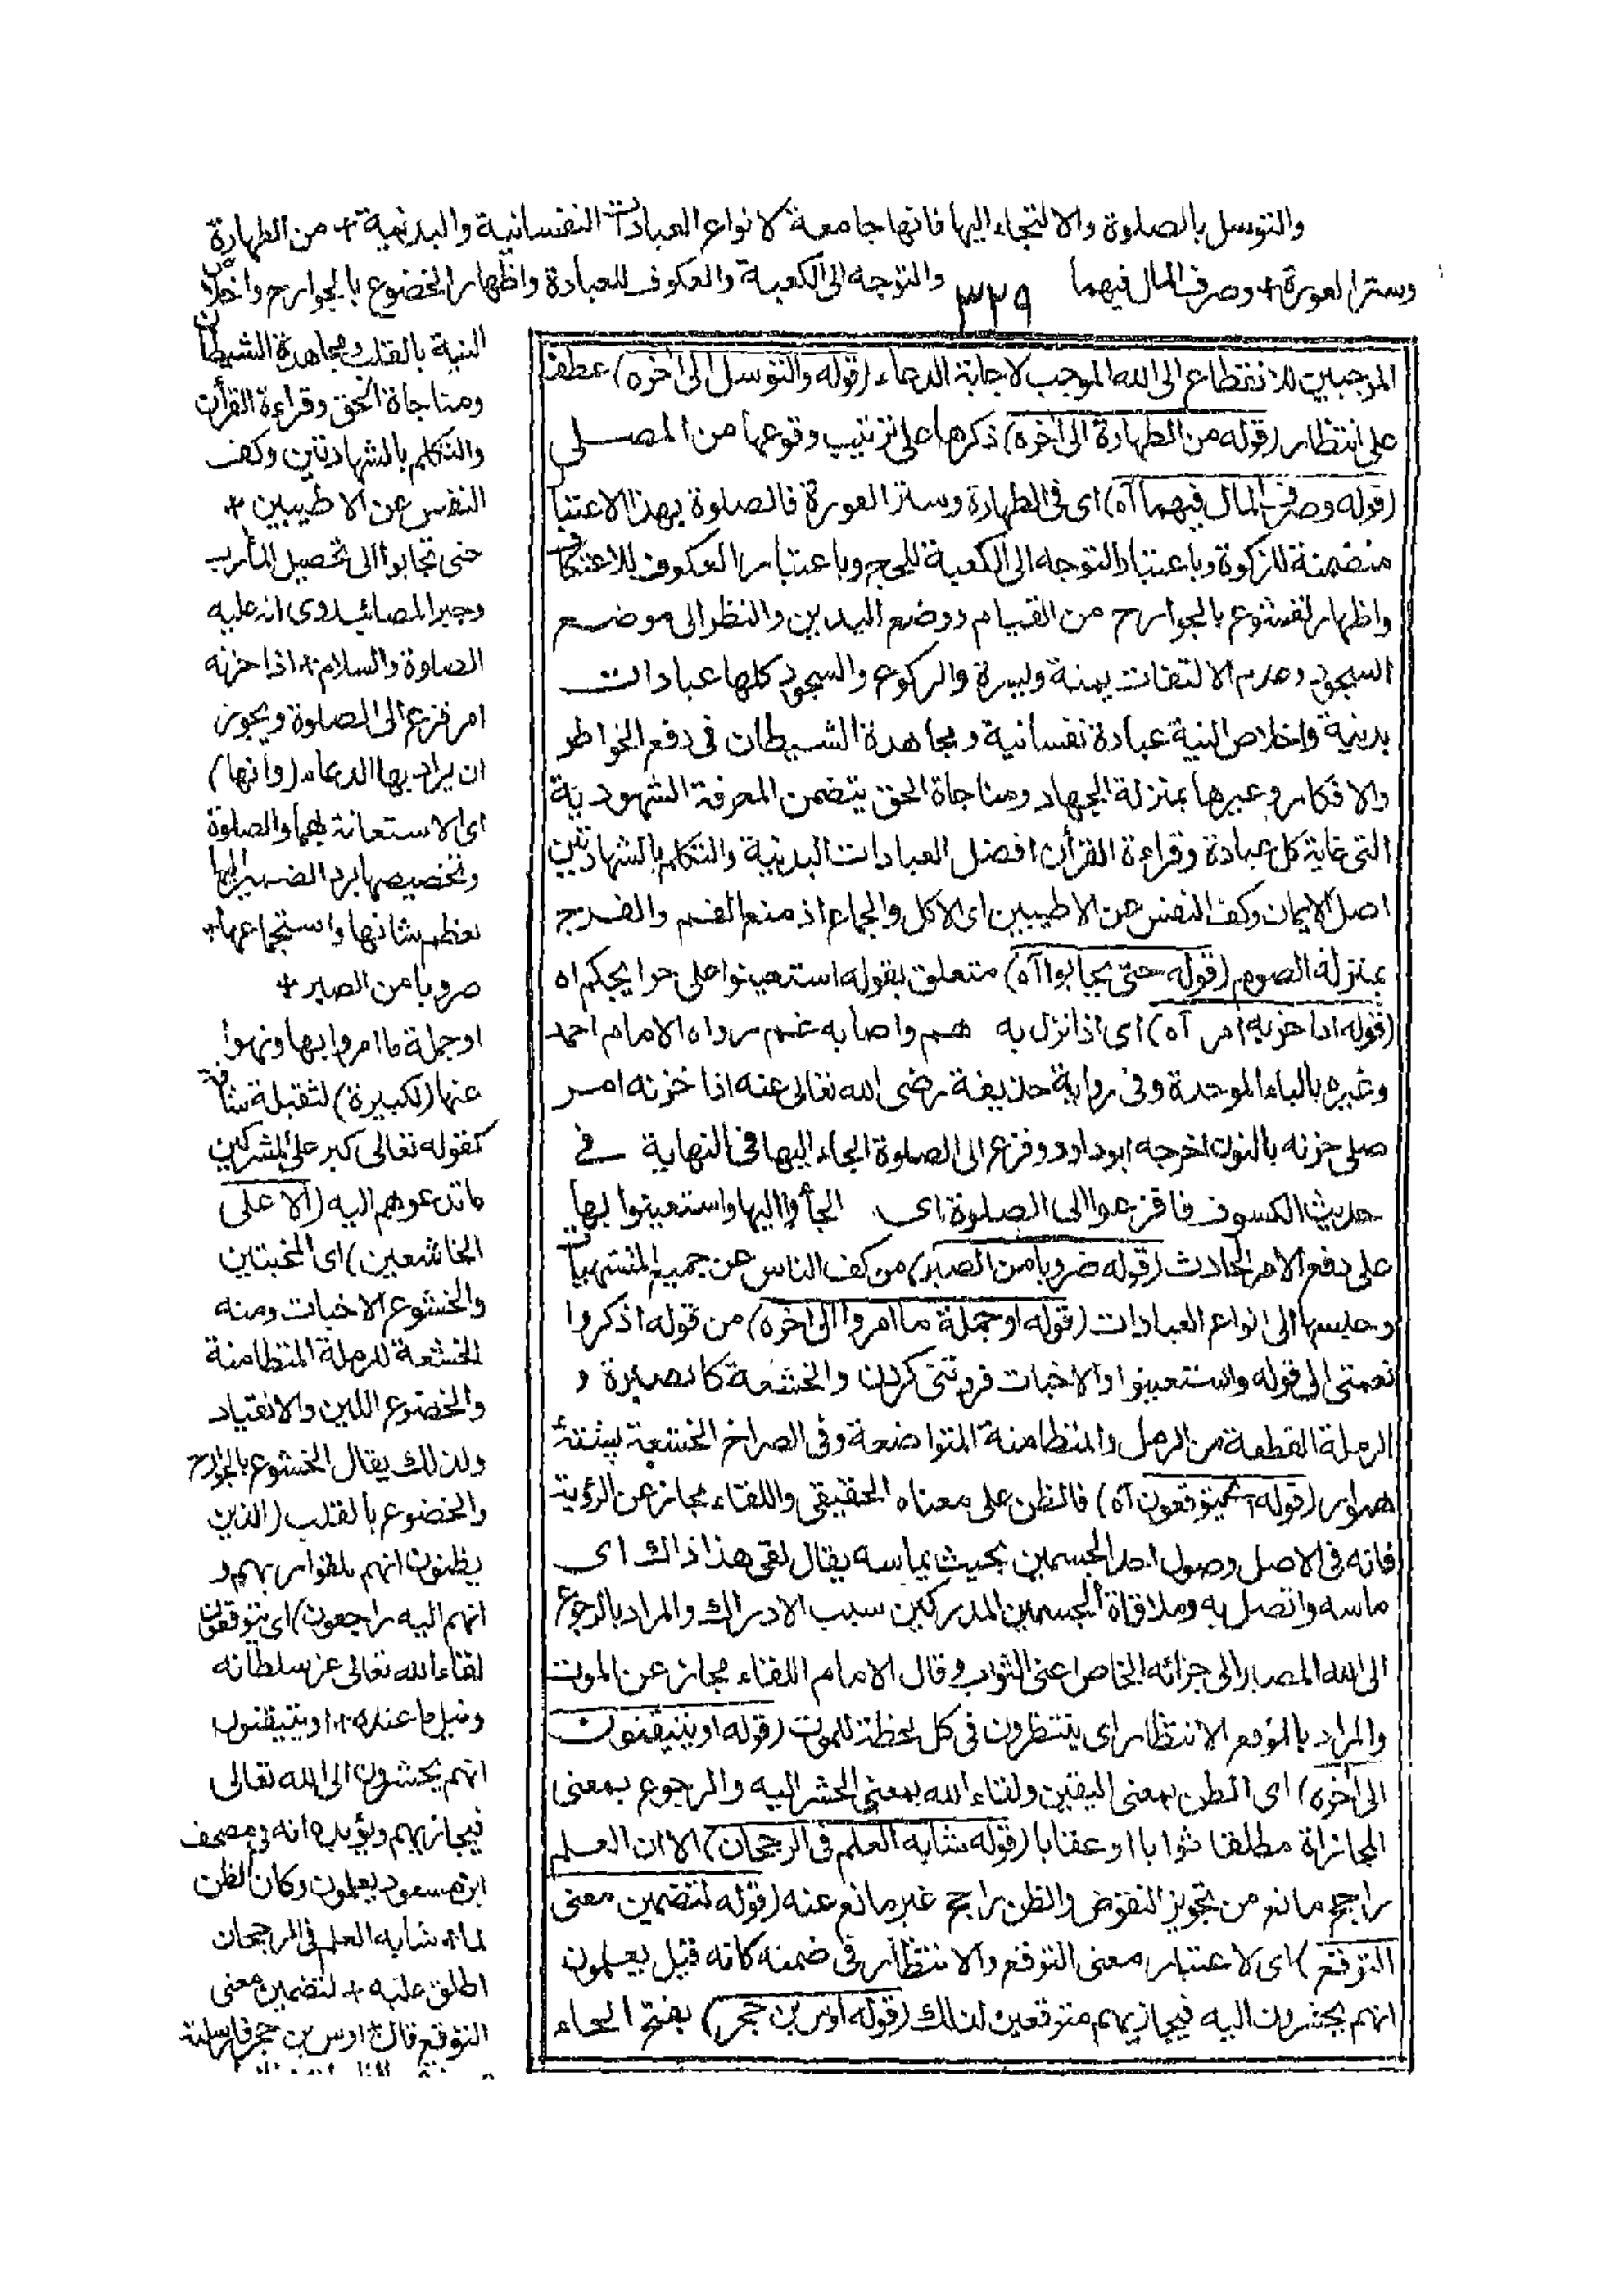 والتوسل بالصلوة والالتجاء اليها فانها جامعة لانواع العبادات النفسانية والبدنية + من الطهارة
وستر العورة + وصرف المال فيهما
٣٢٩
والتوجه الى الكعبة والعكوف للعبادة واظهار الخضوع بالجوارح واخلاص
النية بالقلب ومجاهدة الشيطان
ومناجاة الحق وقراءة القرأن
والتكلم بالشهادتين وكف
النفس عن الاطيبين +
حتى تجابوا الى تحصيل المأرب
وجبر المصائب روى انه عليه
الصلوة والسلام + اذا حزنه
امر فزع الى الصلوة ويجوز
ان يراد بها الدعاء (وانها)
اى الاستعانة بهما والصلوة
وتخصيصها برد الضمير اليها
لعظم شانها واستجماعها +
ضروبا من الصبر +
او جملة ما امروا بها ونهوا
عنها (لكبيرة) لثقيلة شاقة
كقوله تعالى كبر على المشركين
ما تدعوهم اليه (الا على
الخاشعين) اى المخبتين
والخشوع الاخبات ومنه
الخشعة للرملة المتطامنة
والخضوع اللين والانقياد
ولذلك يقال الخشوع بالجوارح
والخضوع بالقلب (الذين
يظنون انهم ملقوا ربهم و
انهم اليه راجعون) اى يتوقعون
لقاء الله تعالى عز سلطانه
ونيل ما عنده + او يتيقنون
انهم يحشرون الى الله تعالى
فيجازيهم ويؤيده انه فى مصحف
ابن مسعود يعلمون وكان الظن
لما + شابه العلم فى الرجحان
اطلق عليه + لتضمين معنى
التوقع قال + اوس بن حجر فارسلته
الموجبين للانقطاع الى الله الموجب لاجابة الدعاء (قوله والتوسل الى اخره) عطف
على انتظار (قوله من الطهارة الى اخره) ذكرها على ترتيب وقوعها من المصلى
(قوله وصرف المال فيهما اه) اى فى الطهارة وستر العورة فالصلوة بهذا الاعتبار
متضمنة للزكوة وباعتبار التوجه الى الكعبة للحج وباعتبار العكوف للاعتكاف
واظهار الخشوع بالجوارح من القيام ووضع اليدين والنظر الى موضع
السجود وعدم الالتفات يمنة ويسرة والركوع والسجود كلها عبادات
بدنية واخلاص النية عبادة نفسانية ومجاهدة الشيطان فى دفع الخواطر
والافكار وغيرها بمنزلة الجهاد ومناجاة الحق يتضمن المعرفة الشهودية
التى غاية كل عبادة وقراءة القرأن افضل العبادات البدنية والتكلم بالشهادتين
اصل الايمان وكف النفس عن الاطيبين اى الاكل والجماع اذ منع الفم والفرج
بمنزلة الصوم (قوله حتى يجابوا اه) متعلق بقوله استعينوا على حوايجكم اه
(قوله اذا حزبه امر اه) اى اذا نزل به هم واصابه غم رواه الامام احمد
وغيره بالباء الموحدة وفى رواية حذيفة رضى الله تعالى عنه اذا حزنه امر
صلى حزنه بالنون اخرجه ابوداود وفزع الى الصلوة الجاء اليها فى النهاية فى
حديث الكسوف فافزعوا الى الصلوة اى الجأوا اليها واستعينوا بها
على دفع الامر الحادث (قوله ضروبا من الصبر) من كف الناس عن جميع المشتهيات
وحبسها الى انواع العبادات (قوله او جملة ما امروا الى اخره) من قوله اذكروا
نعمتى الى قوله واستعينوا والاخبات فروتنى كردن والخشعة كالصبرة و
الرملة القطعة من الرمل والمتطامنة المتواضعة وفى الصراح الخشعة پشتۀ
هموار (قوله يتوقعون اه) فالظن على معناه الحقيقى واللقاء مجاز عن الرؤية
فانه فى الاصل وصول احد الجسمين بحيث يماسه يقال لقى هذا ذاك اى
ماسه واتصل به وملاقاة الجسمين المدركين سبب الادراك والمراد بالرجوع
الى الله المصير الى جزائه الخاص اعنى الثواب وقال الامام اللقاء مجاز عن الموت
والمراد بالتوقع الانتظار اى ينتظرون فى كل لحظة للموت (قوله او يتيقنون
الى اخره) اى الظن بمعنى اليقين ولقاء الله بمعنى الحشر اليه والرجوع بمعنى
المجازاة مطلقا ثوابا او عقابا (قوله شابه العلم فى الرجحان) الا ان العلم
راجح مانع من تجويز النقيض والظن راجح غير مانع عنه (قوله لتضمين معنى
التوقع) اى لاعتبار معنى التوقع والانتظار فى ضمنه كانه قيل يعلمون
انهم يحشرون اليه فيجازيهم متوقعين لذلك (قوله اوس بن حجر) بفتح الحاء